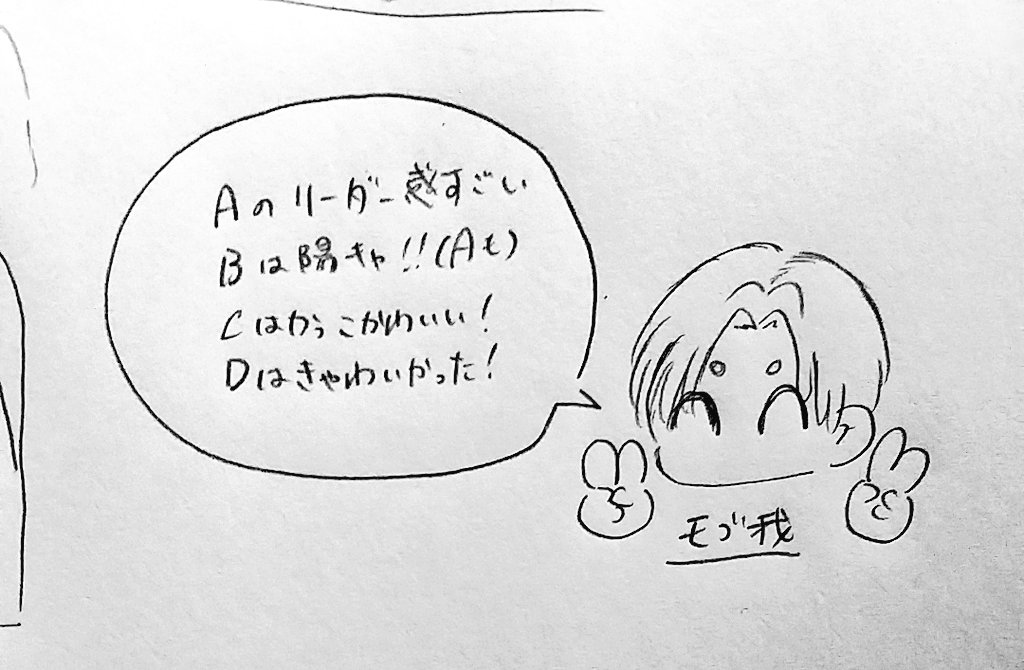 Aのリーダー感すごい
Bは陽キャ!!(Aも)
Cはかっこかわいい!
Dはきゃわいかった!
モブ我